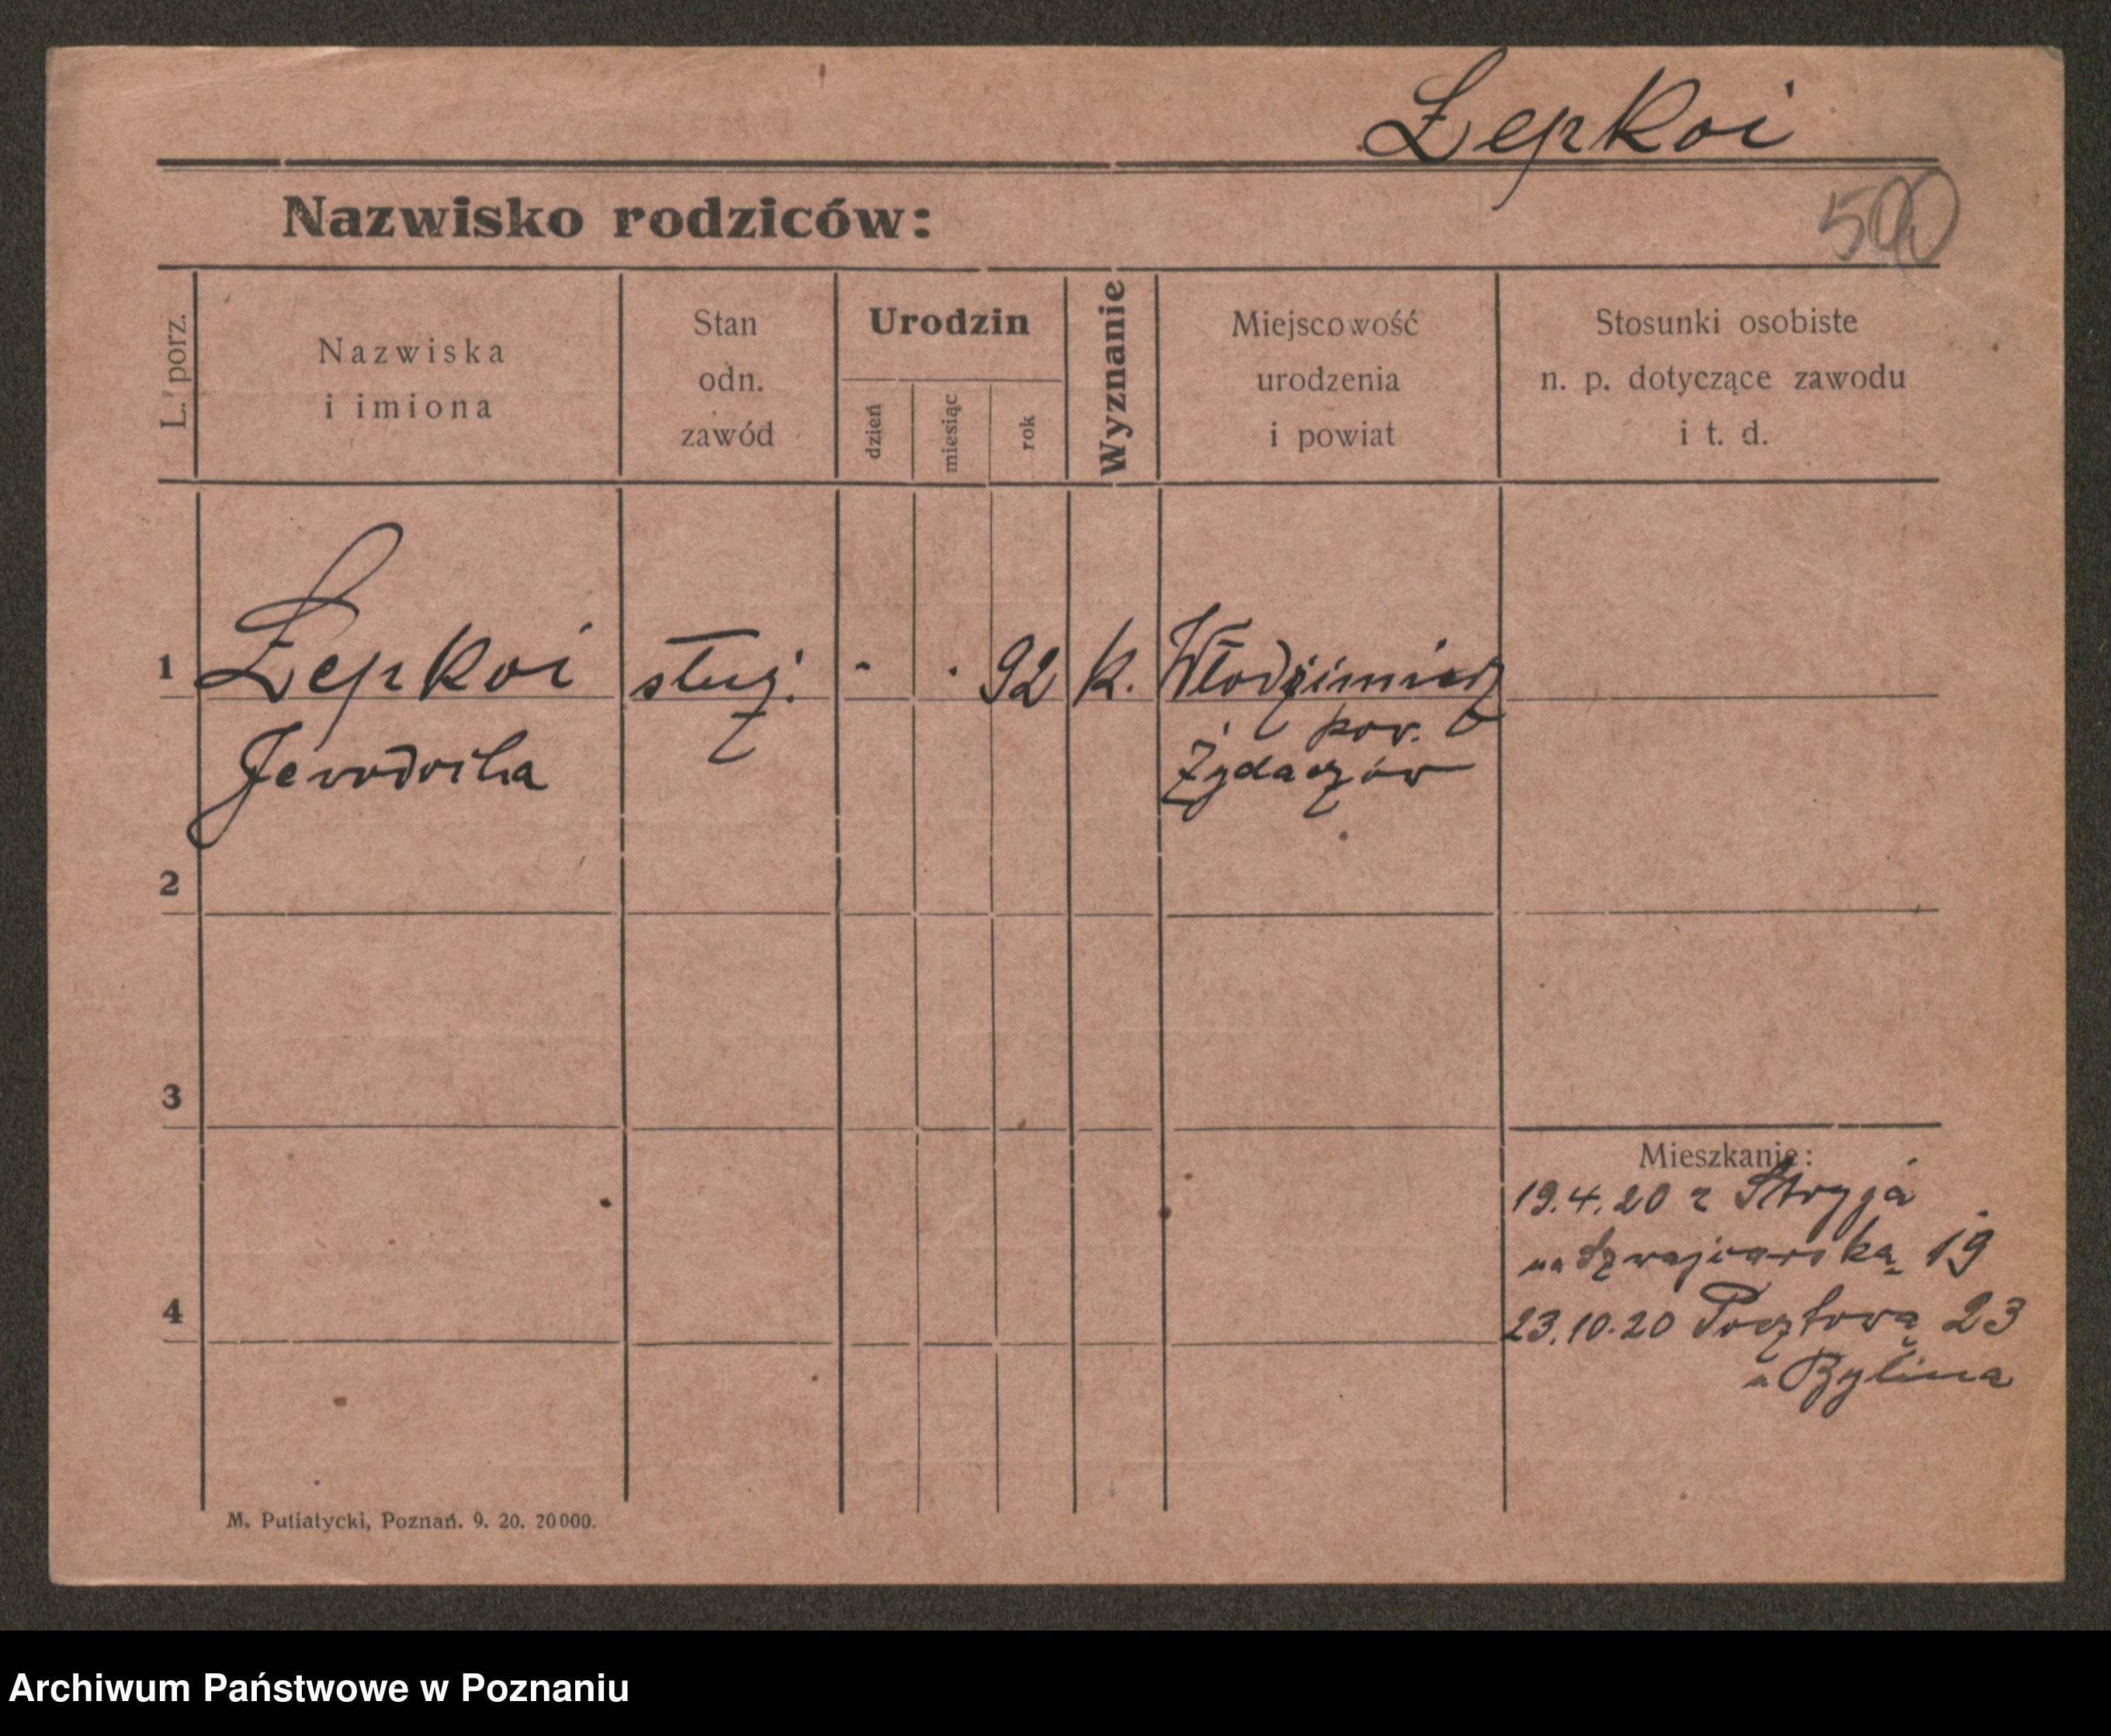 Łepkoi
500
Nazwisko rodziców:
L. porz.
Nazwiska
i imiona
Stan
odn.
zawód
Urodzin
dzień
miesiąc
rok
Wyznanie
Miejscowość
urodzenia
i powiat
Stosunki osobiste
n. p. dotyczące zawodu
i t. d.
1 Łepkoi służ. - . 92 k. Włodzimierz
pow.
Żydaczów
2
3
4
Mieszkanie:
19.4.20 z Stryja
na Szwajcarską 19
23.10.20 Pocztowa 23
u Bylina
M. Putiatycki, Poznań. 9. 20. 20000.
Archiwum Państwowe w Poznaniu